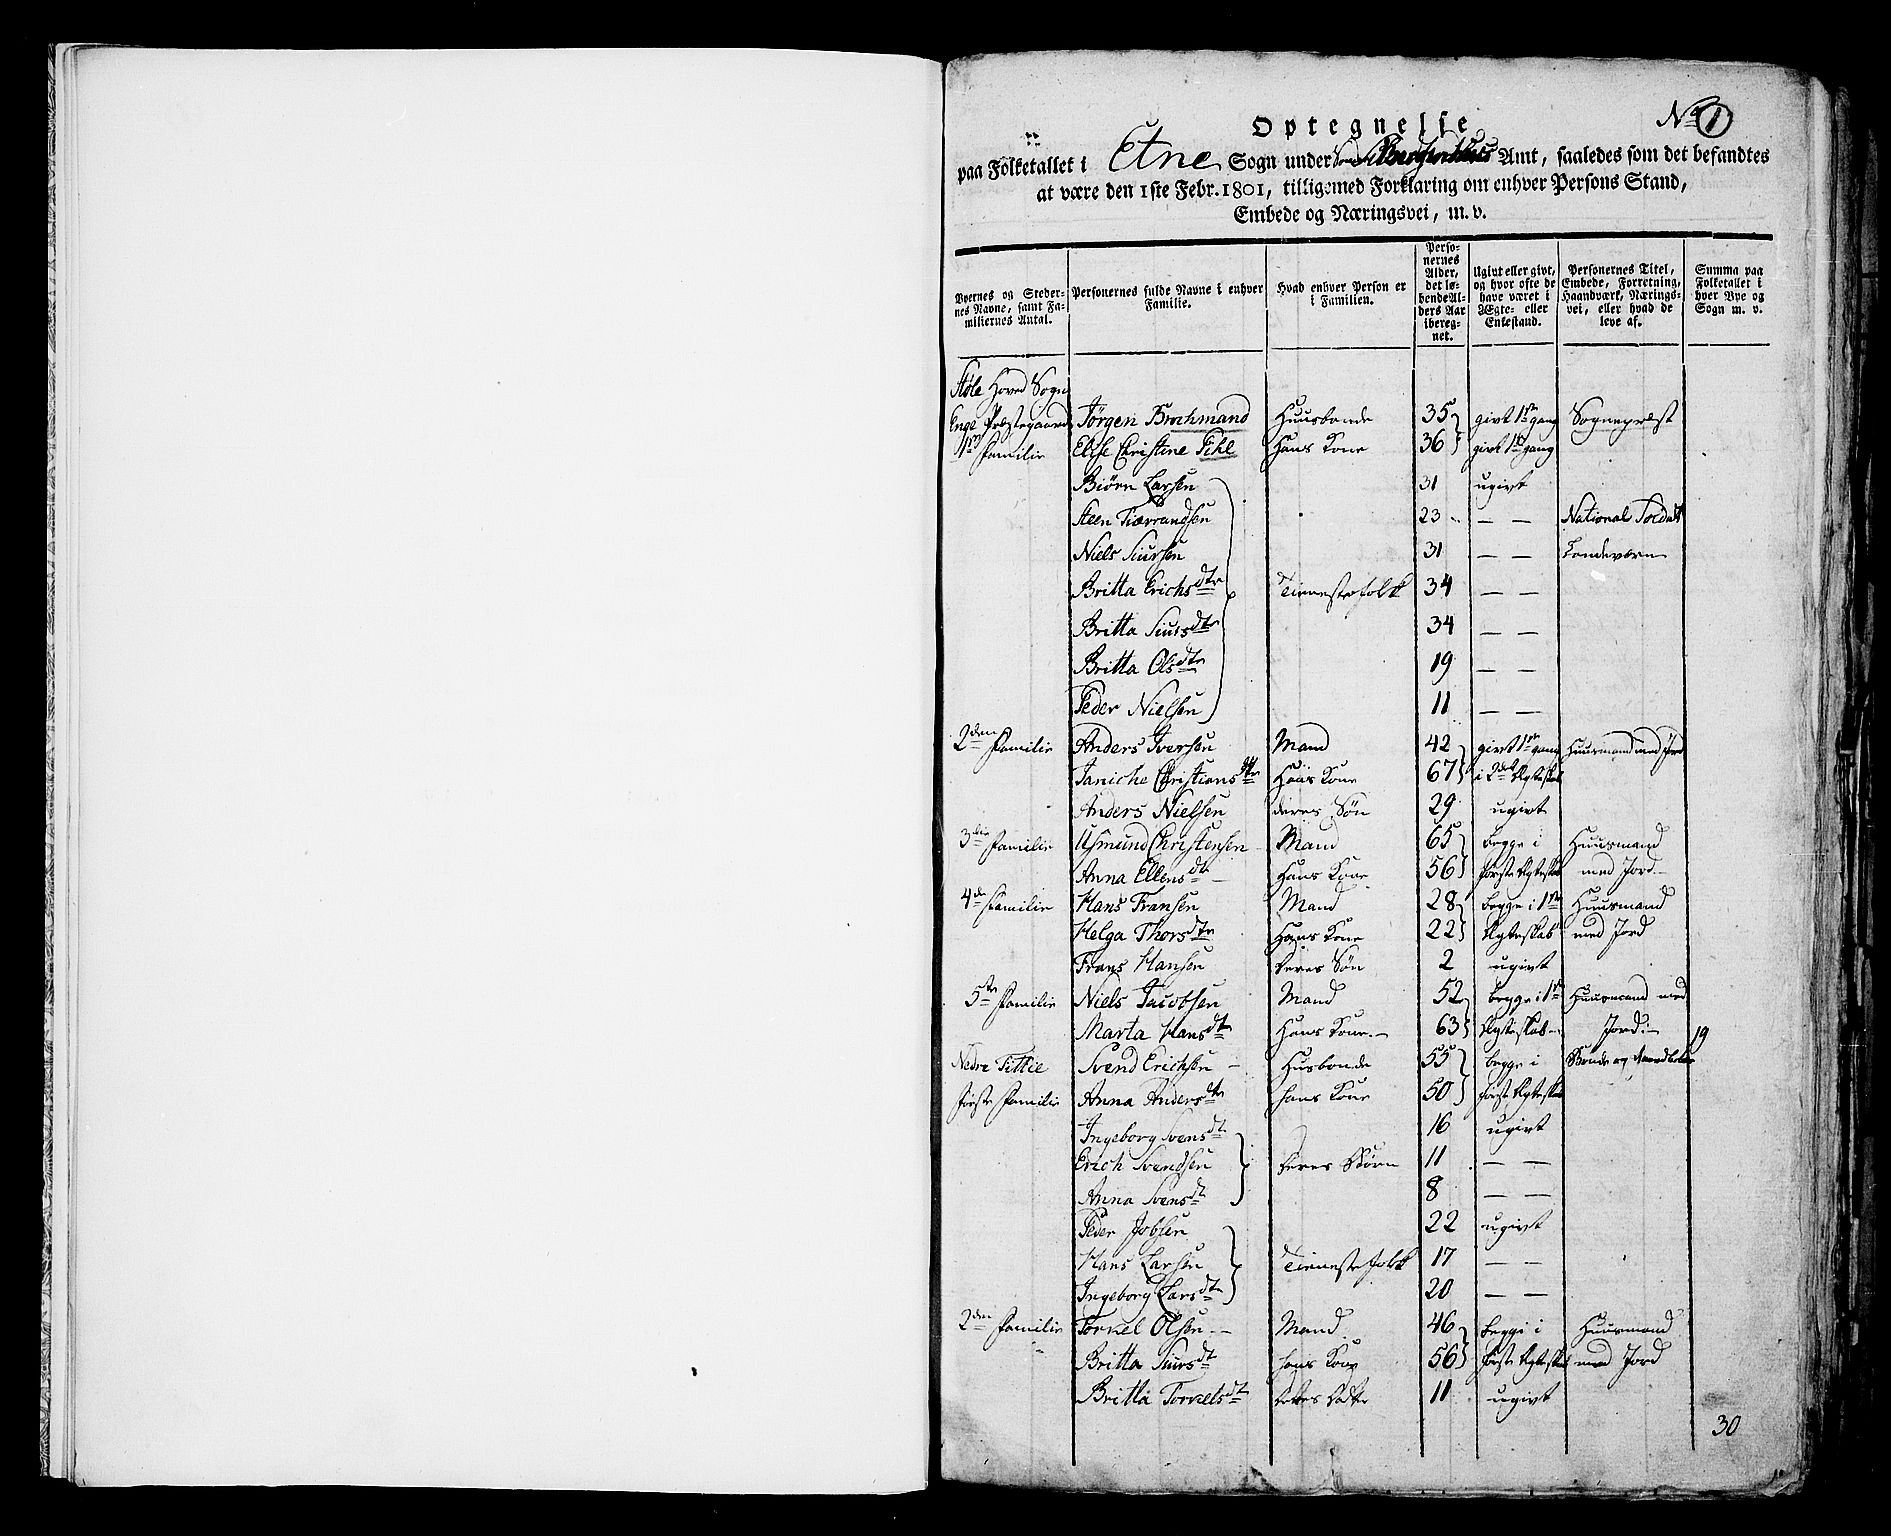 Optegnelse
No 1
paa Folketallet i Etne Sogn under Sønder Bergenhuus Amt, saaledes som det befandtes
at være den 1ste Febr. 1801, tilligemed Forklaring om enhver Persons Stand,
Embede og Næringsvei, m. v.
Byernes og Stedernes Navne, samt Familiernes Antal. | Personernes fulde Navne i enhver Familie. | Hvad enhver Person er i Familien. | Personernes Alder, det løbende Alders Aar iberegnet. | Ugivt eller givt, og hvor ofte de have været i Ægte- eller Enkestand. | Personernes Titel, Embede, Forretning, Haandværk, Næringsvei, eller hvad de leve af. | Summa paa Folketallet i hver Bye og Sogn m. v.
Støle Hoved Sogn
Enge Præstegaard Jørgen Brochmand Huusbonde 35 givt 1ste gang Sogneprest
1ste Familie Elise Christine Pihl Hans Kone 36 givt 1ste gang
Biørn Larsen 31 ugivt
Steen Tiærrandsen 23 — — National Soldat
Niels Siursen 31 — — Landeværn
Britta Erichsdtr Tienestefolk 34 — —
Britta Siursdtr 34 — —
Britta Olsdtr 19 — —
Peder Nielsen 11 — —
2den Familie Anders Iversen Mand 42 givt 1ste gang Huusmand med Jord
Janiche Christiansdtr Hans Kone 67 i 2det Ægteskab
Anders Nielsen deres Søn 29 ugivt
3die Familie Asmund Christensen Mand 65 begge i Huusmand
Anna Ellensdtr — Hans Kone 56 første Ægteskab med Jord —
4de Familie Hans Fransen Mand 28 begge i 1ste Huusmand
Helga Thorsdtr Hans Kone 22 Ægteskab med Jord
Frans Hansen Deres Søn 2 ugivt
5te Familie Niels Jacobsen Mand 52 begge i 1ste Huusmand med
Marta Hansdtr Hans Kone — 63 Ægteskab — Jord — 19
Nedre Tittie Svend Erichsen — Husbonde 55 begge i Bonde og Gaardbeboer
første Familie Anna Andersdtr hans Kone 50 første Ægteskab
Ingeborg Svensdtr 16 ugivt
Erich Svendsen Deres Børn 11 — —
Anna Svensdtr 8 — —
Peder Jobsen 22 ugivt
Hans Larsen Tienestefolk 17 — —
Ingeborg Larsdtr 20 — —
2den Familie Torkel Olsen — Mand 46 begge i Huusmand
Britta Siursdtr hans Kone 56 første Ægteskab med Jord
Britta Torkelsdtr Deres Datter 11 ugivt
30